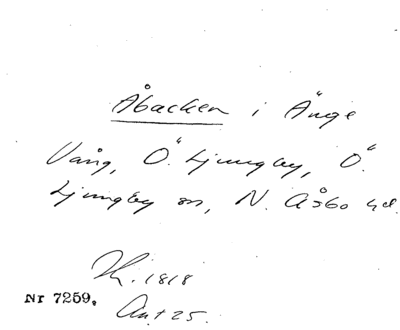 Åbacken i Änge
Vång, Ö. Ljungby, Ö.
Ljungby sn, N. Åsbo hd.
1818
Nr 7259. Ant 25.